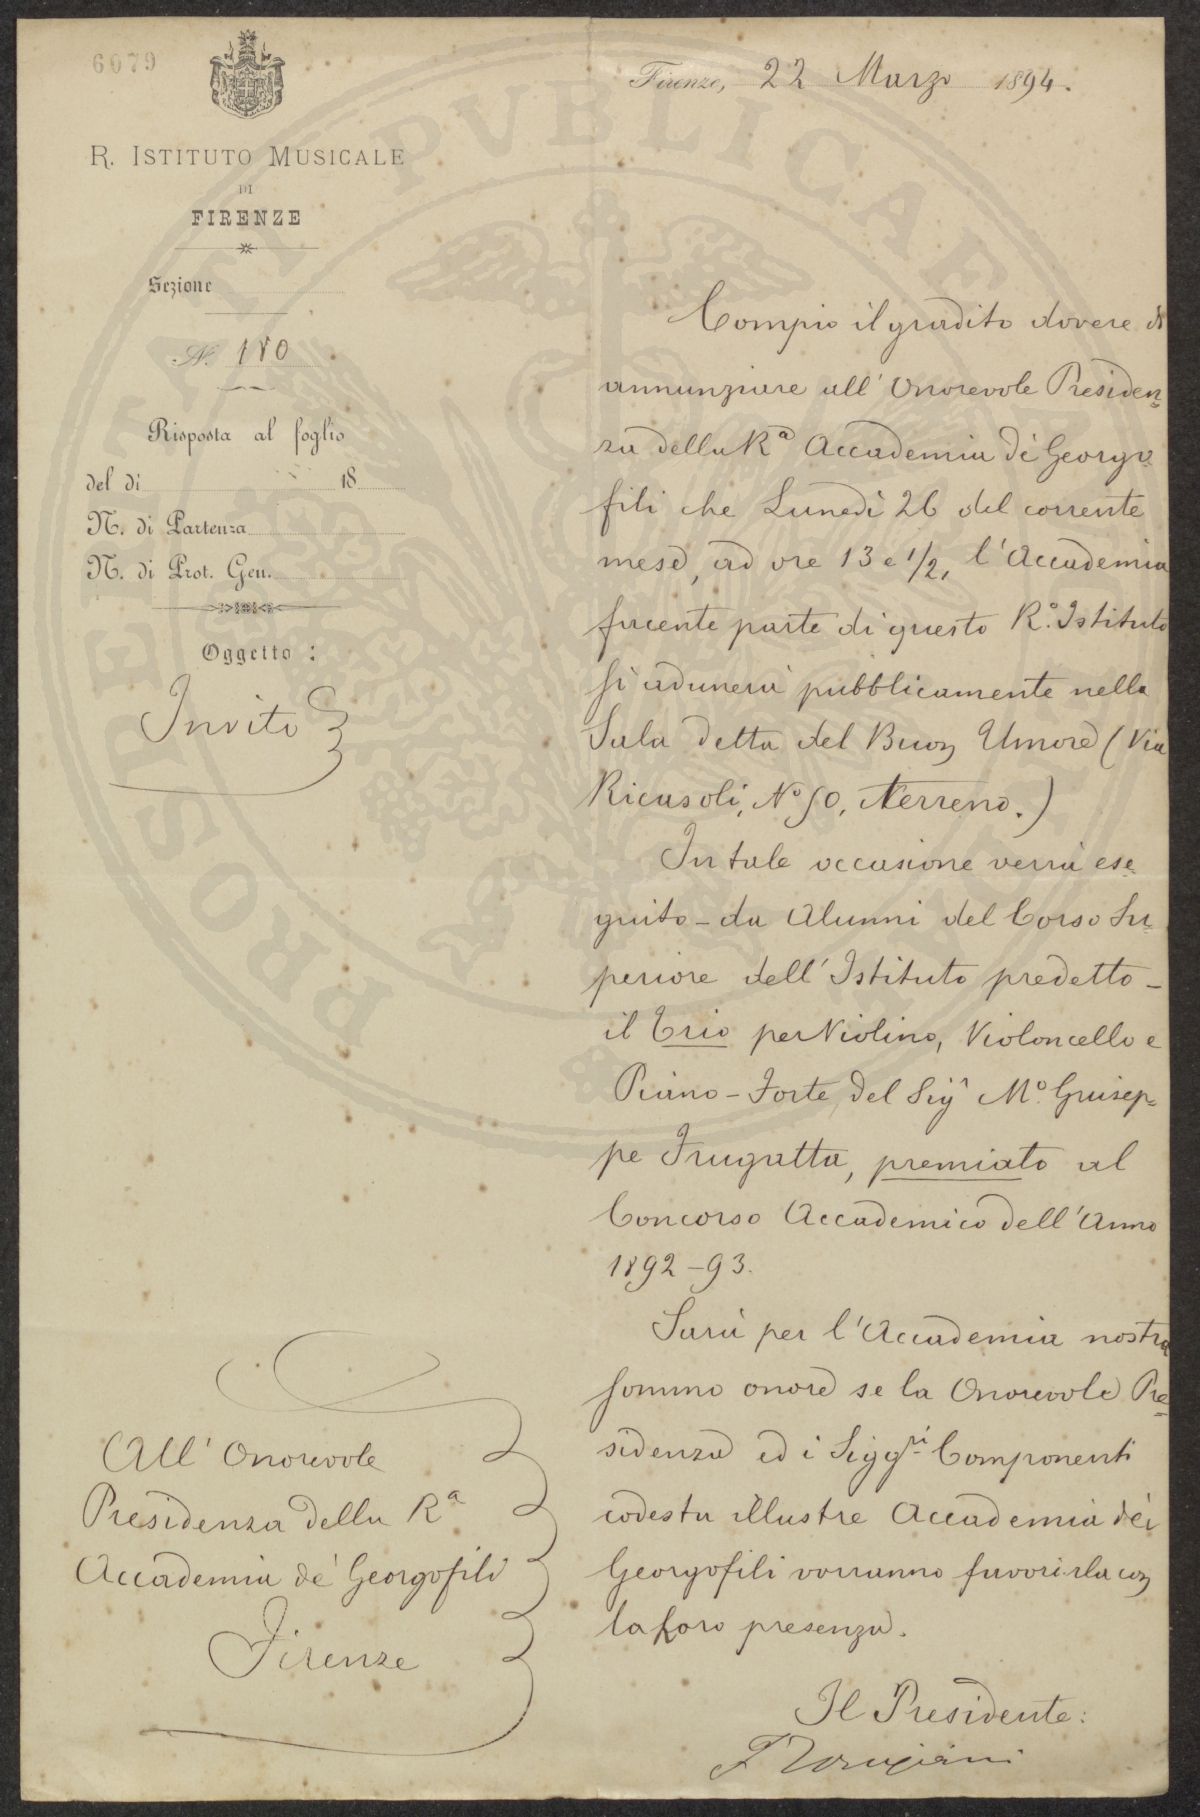 6079
R. ISTITUTO MUSICALE
DI
FIRENZE
Sezione
N. 180
Risposta al foglio
del dì 18
N. di Partenza
N. di Prot. Gen.
Oggetto:
Invito
Firenze, 22 Marzo 1894.
Compio il gradito dovere di
annunziare all' Onorevole Presiden-
za della Ra Accademia de' Georgo-
fili che Lunedì 26 del corrente
mese, ad ore 13 e 1/2, l'Accademia
facente parte di questo R.o Istituto
si adunerà pubblicamente nella
Sala detta del Buon Umore (Via
Ricasoli, No 50, Terreno.)
In tale occasione verrà ese-
guito - da Alunni del Corso Su-
periore dell' Istituto predetto -
il Trio per Violino, Violoncello e
Piano-Forte del Sigr Mo. Giusep-
pe Frugatta, premiato al
Concorso Accademico dell'Anno
1892-93.
Sarà per l'Accademia nostra
sommo onore se la Onorevole Pre-
sidenza ed i Siggri Componenti
codesta illustre Accademia dei
Georgofili vorranno favorirla con
la loro presenza.
Il Presidente:
All' Onorevole
Presidenza della Ra
Accademia de' Georgofili
Firenze
PROSPERITATI PVBLICAE